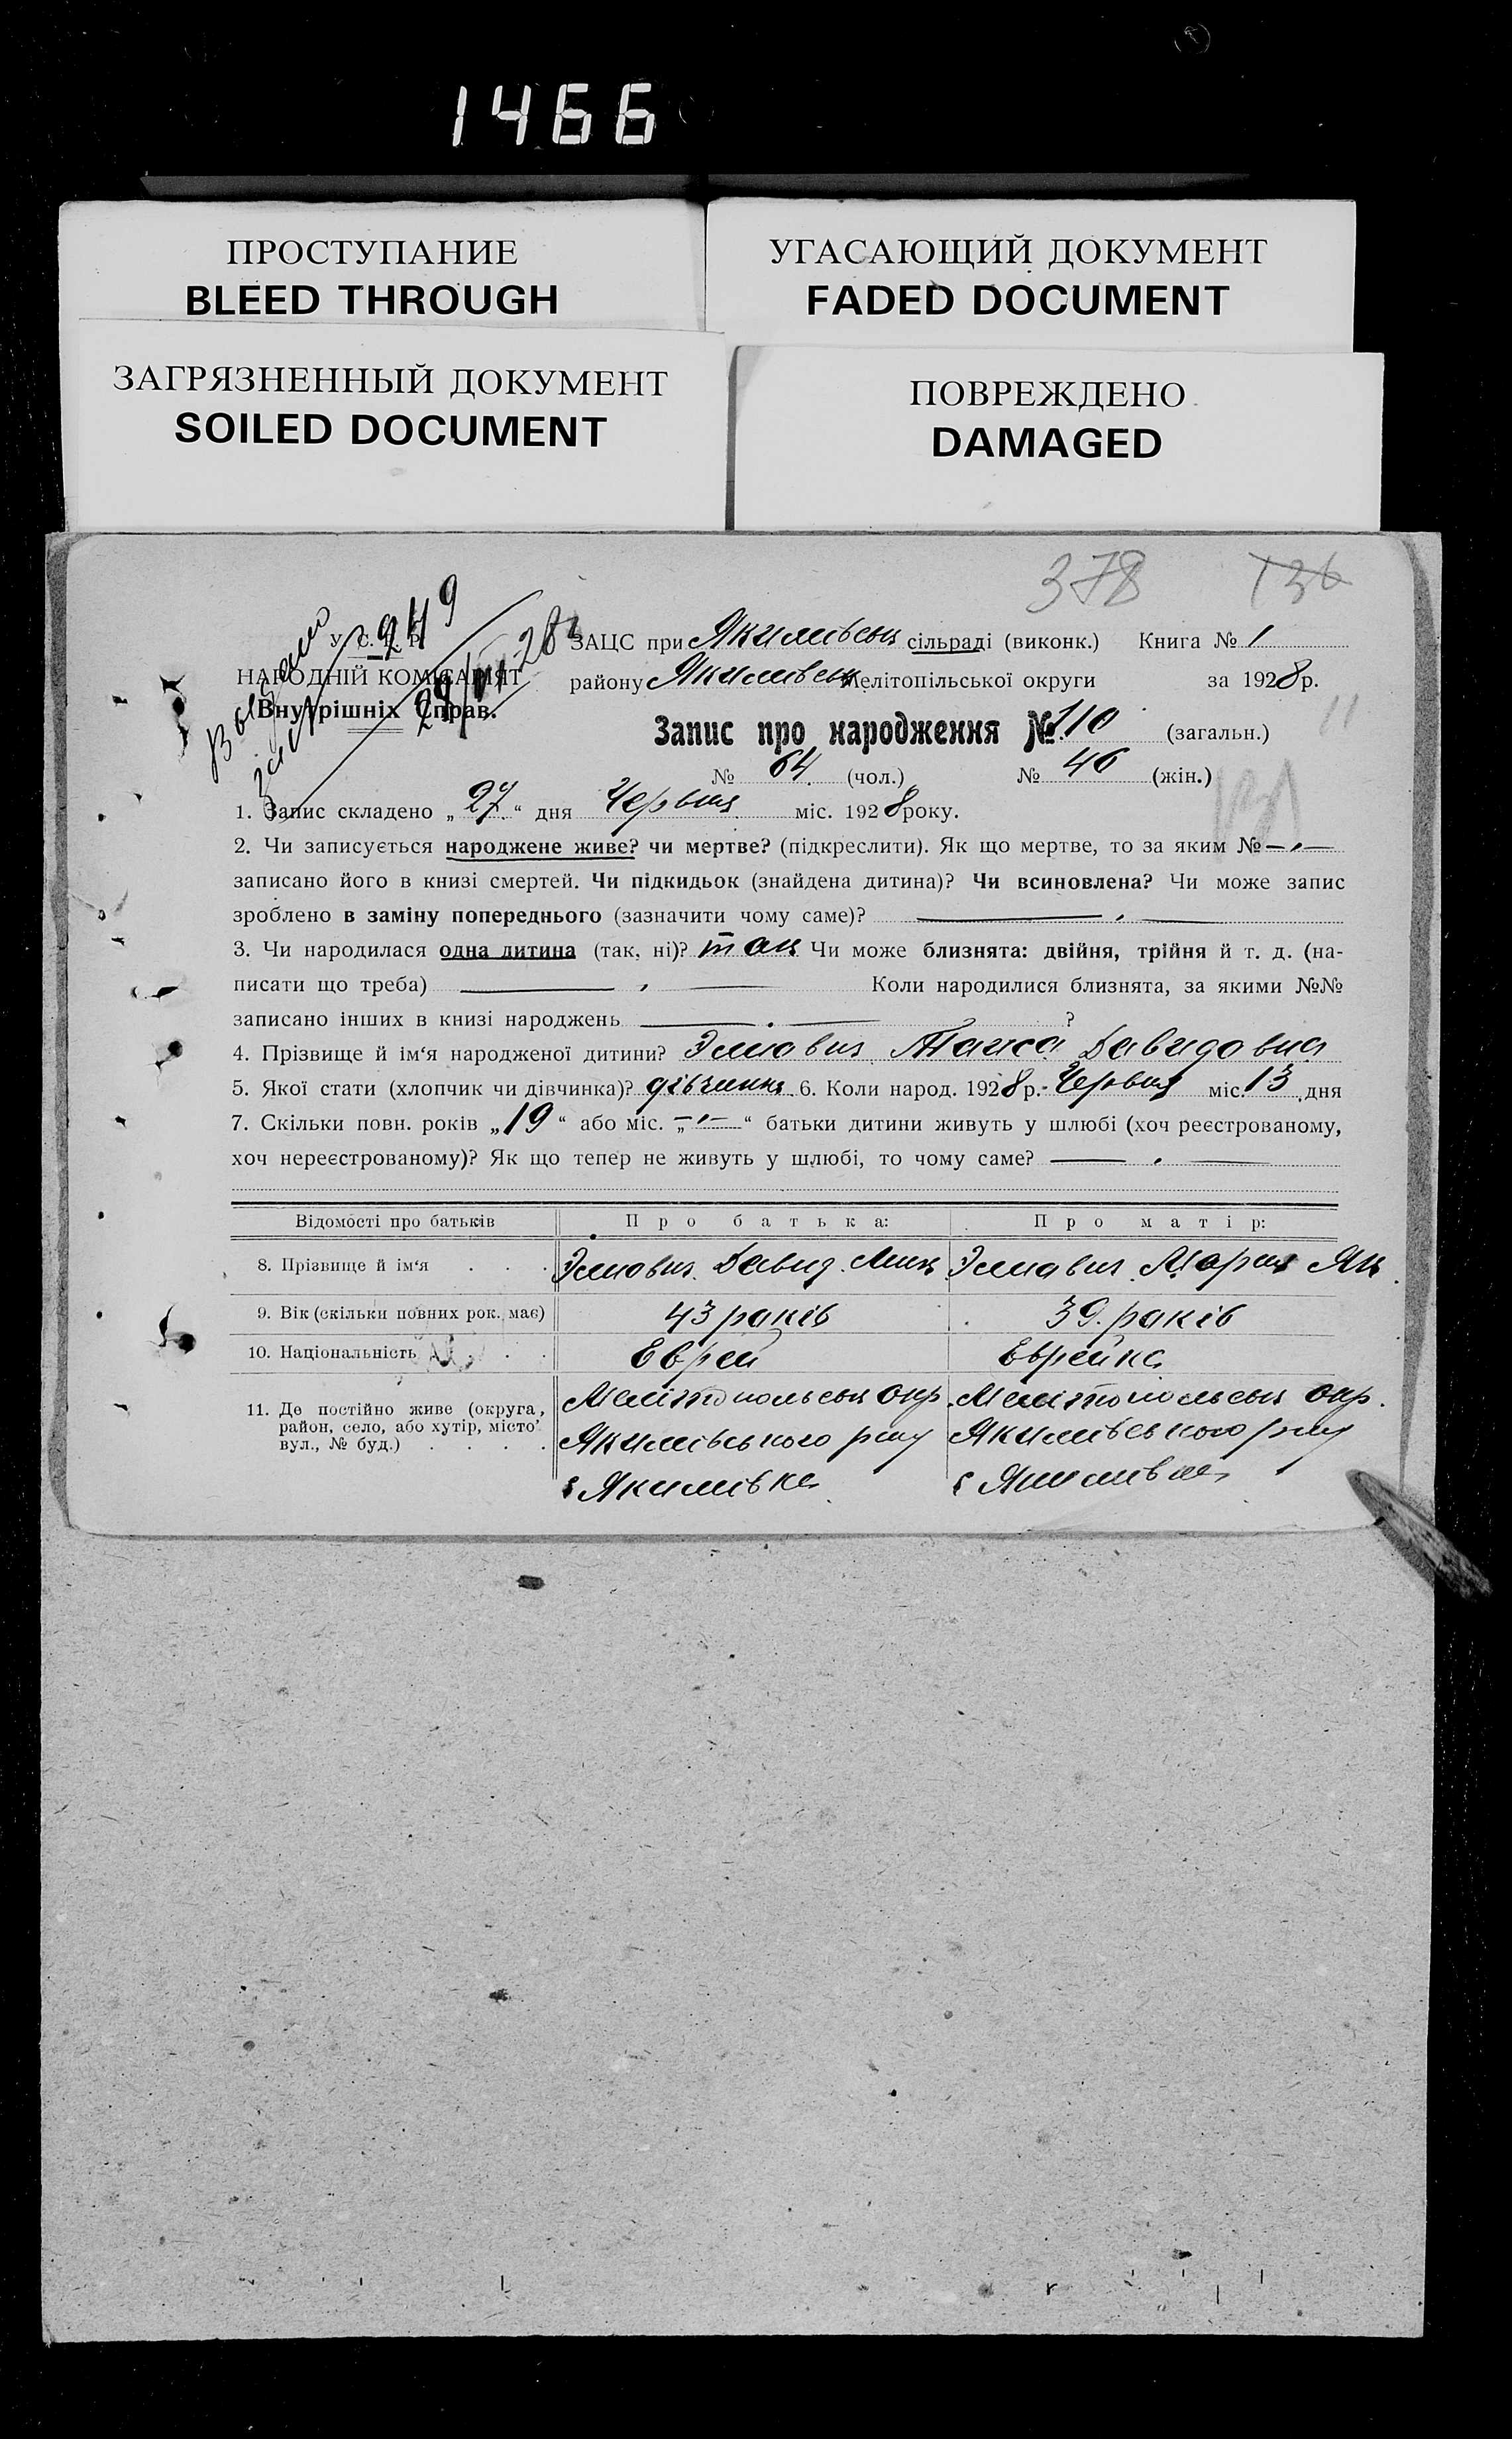 1466
ПРОСТУПАНИЕ
BLEED THROUGH
УГАСАЮЩИЙ ДОКУМЕНТ
FADED DOCUMENT
ЗАГРЯЗНЕННЫЙ ДОКУМЕНТ
SOILED DOCUMENT
ПОВРЕЖДЕНО
DAMAGED
378 136
У. С. Р. Р.
НАРОДНІЙ КОМІСАРІЯТ
Внутрішніх Справ.
ЗАЦС при Якимівськ сільраді (виконк.) Книга № 1
району Якимівськ Мелітопільської округи за 1928 р.
Запис про народження № 110 (загальн.)
№ 64 (чол.) № 46 (жін.)
1. Запис складено „27“ дня Червня міс. 1928 року.
2. Чи записується народжене живе? чи мертве? (підкреслити). Як що мертве, то за яким №
записано його в книзі смертей. Чи підкидьок (знайдена дитина)? Чи всиновлена? Чи може запис
зроблено в заміну попереднього (зазначити чому саме)?
3. Чи народилася одна дитина (так, ні)? так Чи може близнята: двійня, трійня й т. д. (на-
писати що треба) Коли народилися близнята, за якими №№
записано інших в книзі народжень ?
4. Прізвище й ім‘я народженої дитини? Давидовна
5. Якої стати (хлопчик чи дівчинка)? дівчинка 6. Коли народ. 1928 р. Червня міс. 13 дня
7. Скільки повн. років „19“ або міс. „ “ батьки дитини живуть у шлюбі (хоч реєстрованому,
хоч нереєстрованому)? Як що тепер не живуть у шлюбі, то чому саме?
Відомості про батьків Про батька: Про матір:
8. Прізвище й ім‘я Давид Мария
9. Вік (скільки повних рок. має) 43 років 39 років
10. Національність Еврей Еврейка
11. Де постійно живе (округа, район, село, або хутір, місто вул., № буд.)
Мелітопольськ окр. Мелітопольськ окр.
Якимівського р-ну Якимівського р-ну
с Якимівка с Якимівка